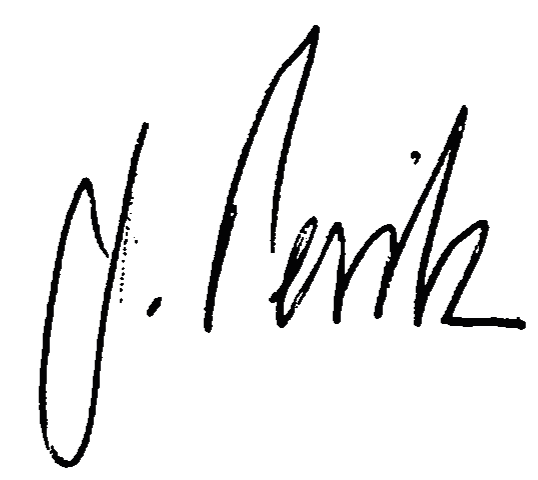 J. Perik